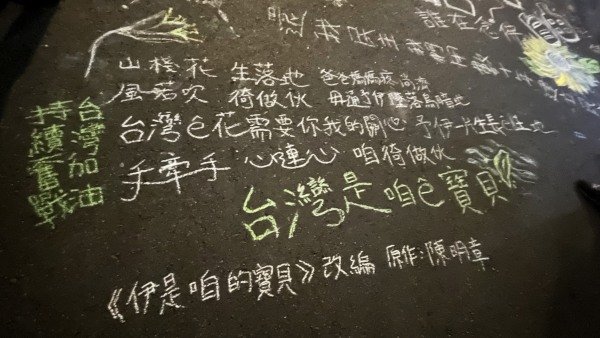 還我民主
台灣加油
持續奮戰
山桜花 生落地 爸爸媽媽疼 尚濟
風若吹 徛做伙 毋通予伊墜落烏暗地
台灣ㄟ花需要你我的關心 予伊一片生長土地
手牽手 心連心 咱徛做伙
台灣是咱ㄟ寶貝
《伊是咱的寶貝》改編 原作:陳明章